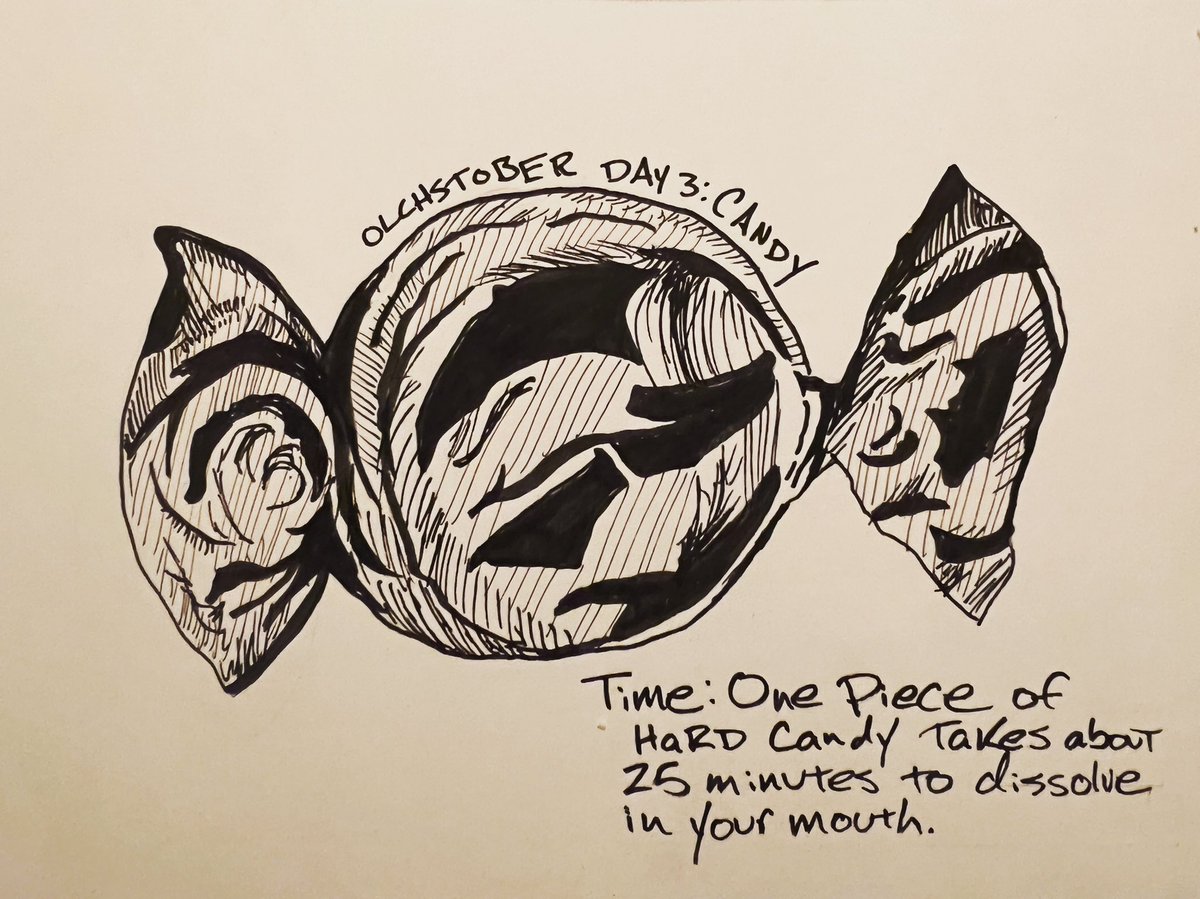 OLCHSTOBER DAY 3: CANDY
Time: One Piece of
HARD Candy Takes about
25 minutes to dissolve
in your mouth.